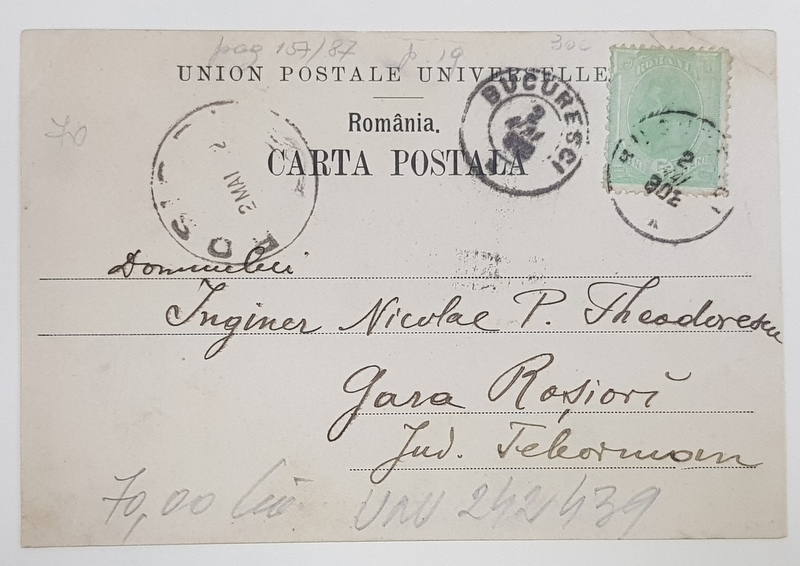 pag 157/87 p. 19 300
UNION POSTALE UNIVERSELLE
ROMANIA
BUCURESCI
70
România.
CARTA POSTALA
2 MAI 2
2
902
Domnului
Inginer Nicolae P. Theodorescu
Gara Roșiori
Jud. Teleorman
70,00 lei
242439